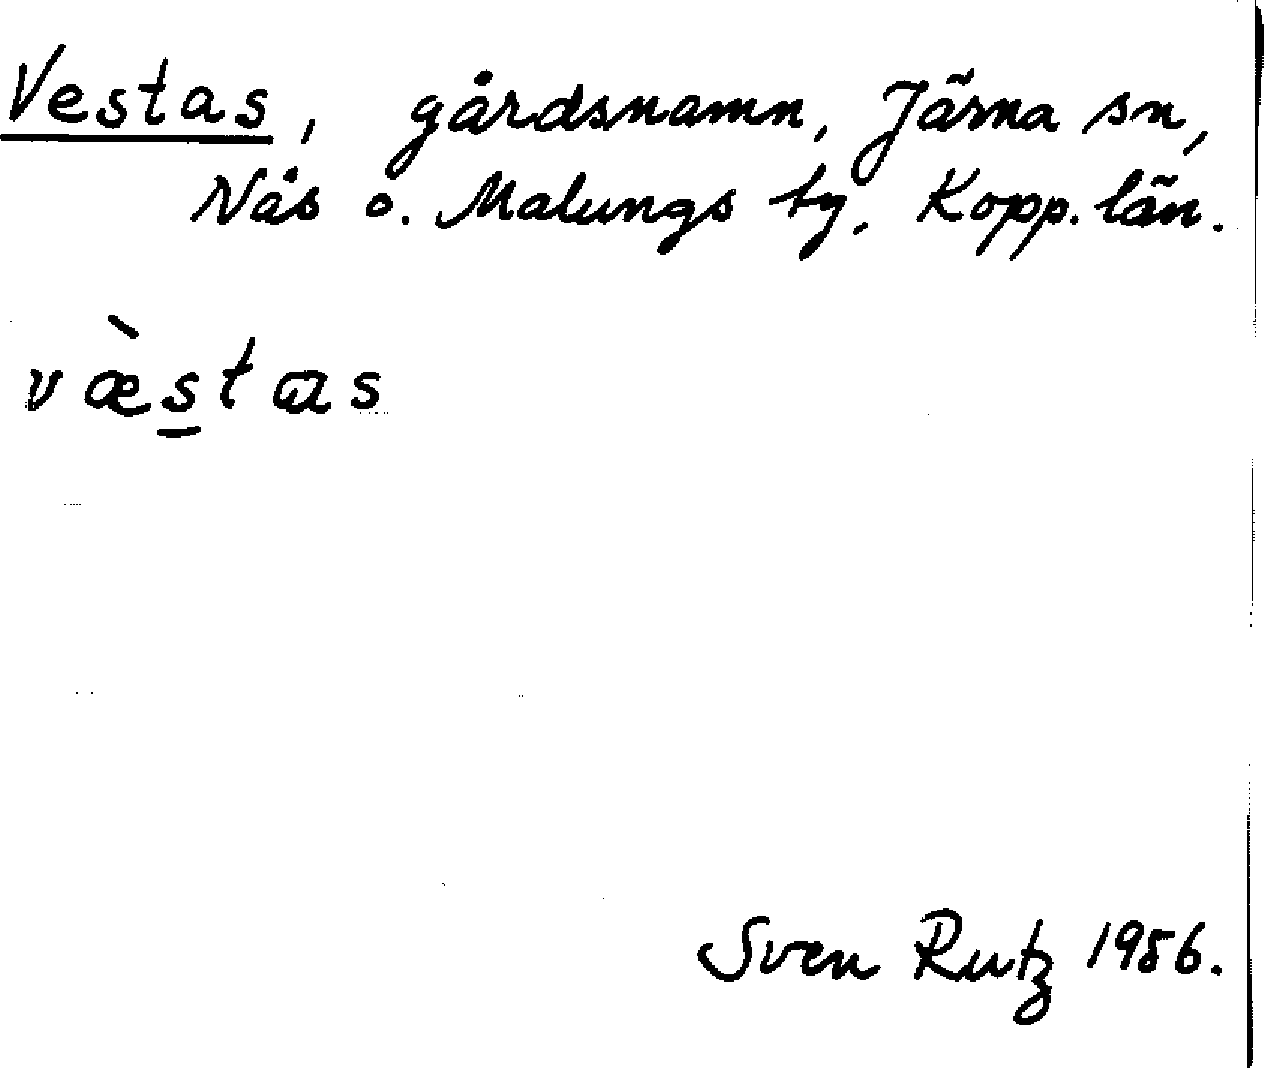 Vestas, gårdsnamn, Järna sn,
Nås o. Malungs ty. Kopp. län.
væ̀s̲tas
Sven Rutz 1986.